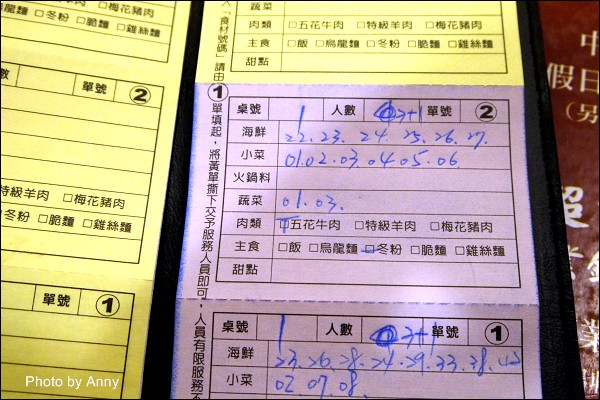 蔬菜
肉類 □五花牛肉 □特級羊肉 □梅花豬肉
主食 □飯 □烏龍麵 □冬粉 □脆麵 □雞絲麵
甜點
入「食材號碼」請由①單填起，將黃單撕下交予服務人員即可，人員有限服務不
桌號 1 人數 3+1 單號 ②
海鮮 22.23. 24. 25.26.27.
小菜 01.02.03.04.05.06.
火鍋料
蔬菜 01.03.
肉類 □五花牛肉 □特級羊肉 □梅花豬肉
主食 □飯 □烏龍麵 □冬粉 □脆麵 □雞絲麵
甜點
桌號 1 人數 3+1 單號 ①
海鮮 23.26.28.24.29.33.38.
小菜 02.07.08.
□冬粉 □脆麵 □雞絲麵
人數 單號 ②
特級羊肉 □梅花豬肉
□冬粉 □脆麵 □雞絲麵
單號 ①
假日
（另
超
Photo by Anny